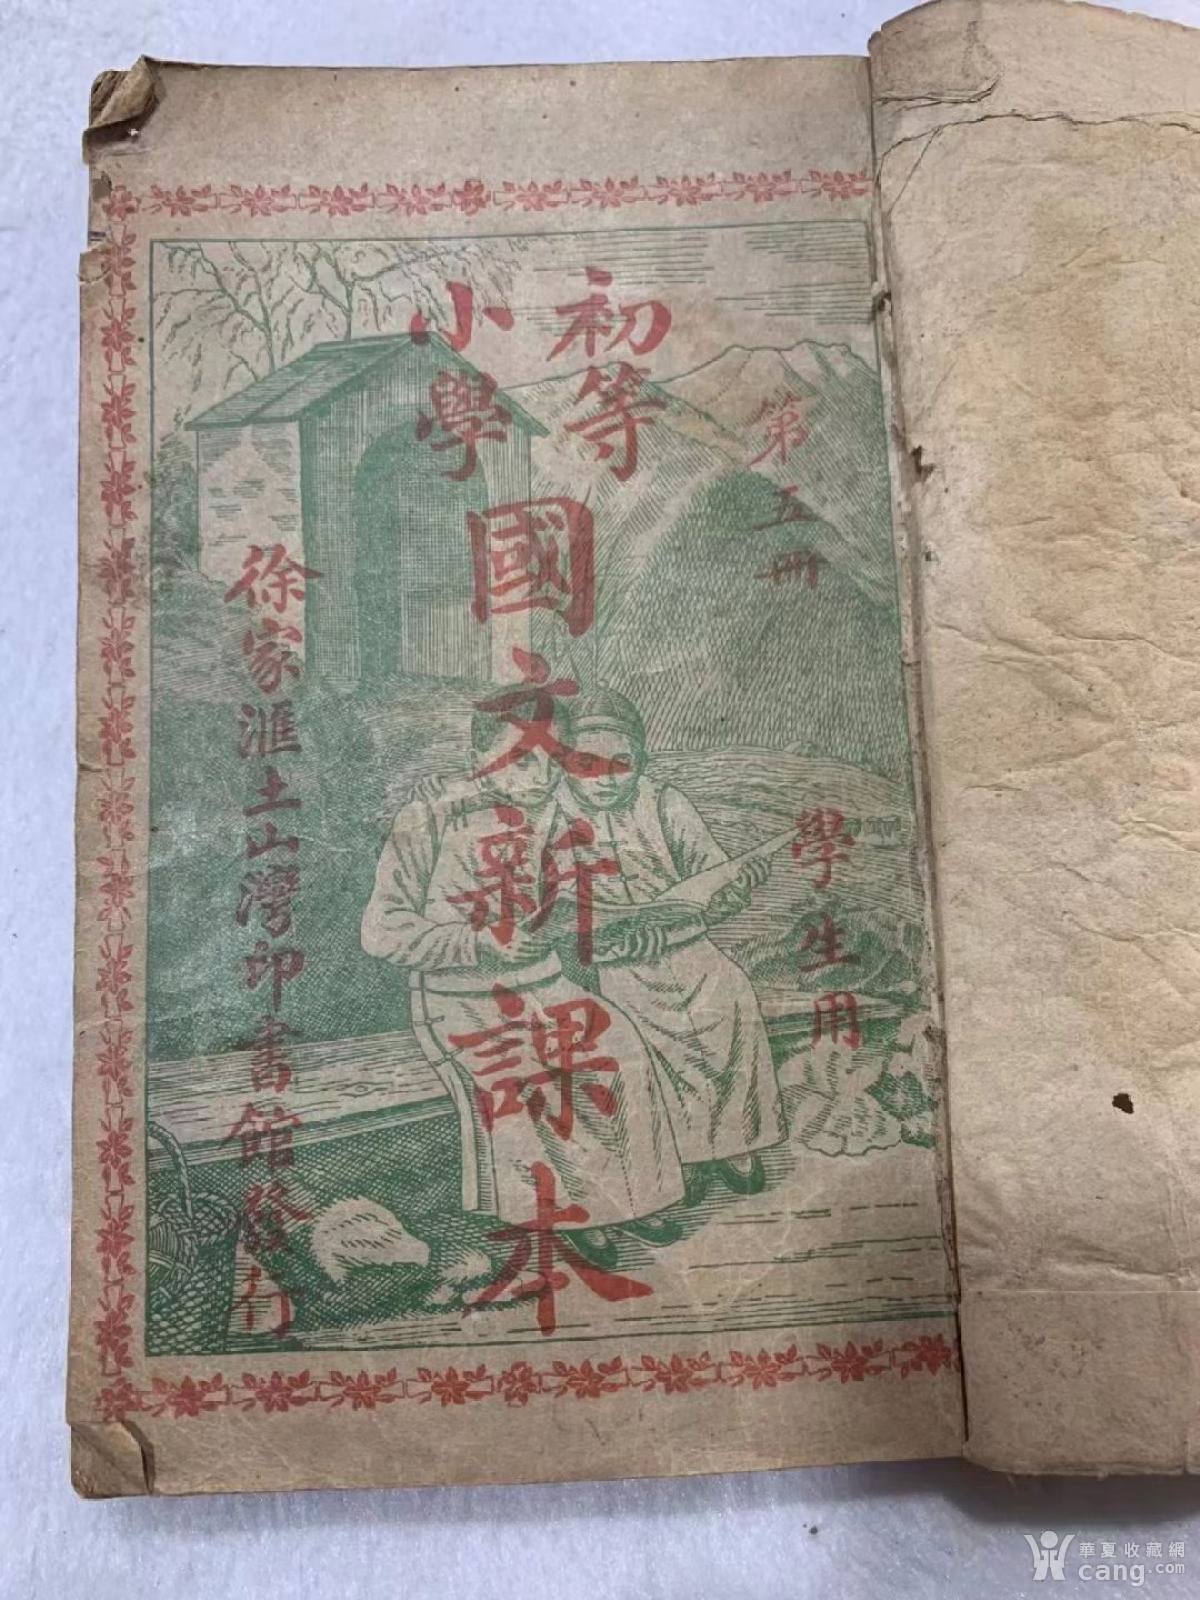 第五册
學生用
初等
小學
國文新課本
徐家滙土山灣印書館發行
華夏收藏網
cang.com